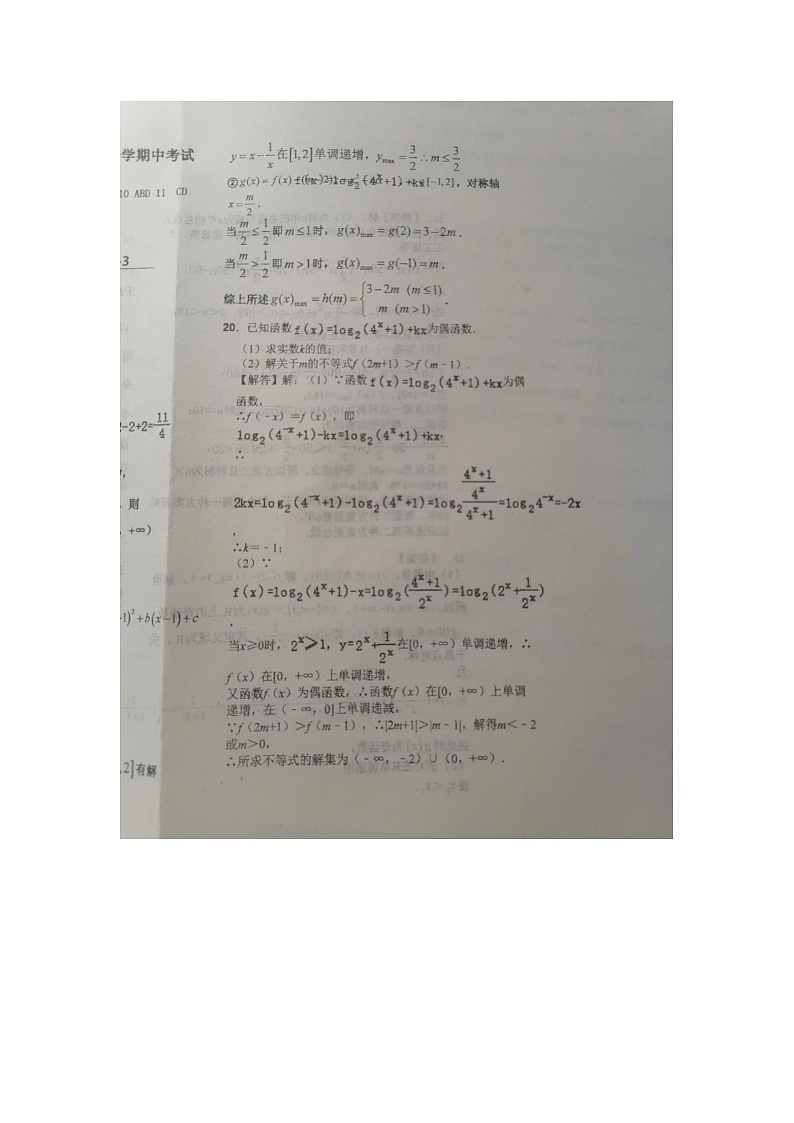 学期中考试
10 ABD 11 CD
-3
2-2+2=11/4
,
,则
,+∞)
-1)²+b(x-1)+c
,2]有解
y=x-1/x在[1,2]单调递增,y_max=3/2∴m≤3/2
②g(x)=f(x) [-1,2],对称轴
x=m/2.
当m/2≤1/2即m≤1时,g(x)_max=g(2)=3-2m.
当m/2>1/2即m>1时,g(x)_max=g(-1)=m.
综上所述g(x)_max=h(m)={3-2m (m≤1) m (m>1).
20.已知函数f(x)=log₂(4^x+1)+kx为偶函数.
(1)求实数k的值;
(2)解关于m的不等式f(2m+1)>f(m-1).
【解答】解:(1)∵函数f(x)=log₂(4^x+1)+kx为偶
函数,
∴f(-x)=f(x),即
log₂(4^-x+1)-kx=log₂(4^x+1)+kx,
∴
2kx=log₂(4^-x+1)-log₂(4^x+1)=log₂((4^x+1)/4^x)/(4^x+1)=log₂4^-x=-2x
,
∴k=-1;
(2)∵
f(x)=log₂(4^x+1)-x=log₂((4^x+1)/2^x)=log₂(2^x+1/2^x)
,
当x≥0时,2^x≥1,y=2^x+1/2^x在[0,+∞)单调递增,∴
f(x)在[0,+∞)上单调递增,
又函数f(x)为偶函数,∴函数f(x)在[0,+∞)上单调
递增,在(-∞,0]上单调递减,
∵f(2m+1)>f(m-1),∴|2m+1|>|m-1|,解得m<-2
或m>0,
∴所求不等式的解集为(-∞,-2)∪(0,+∞).